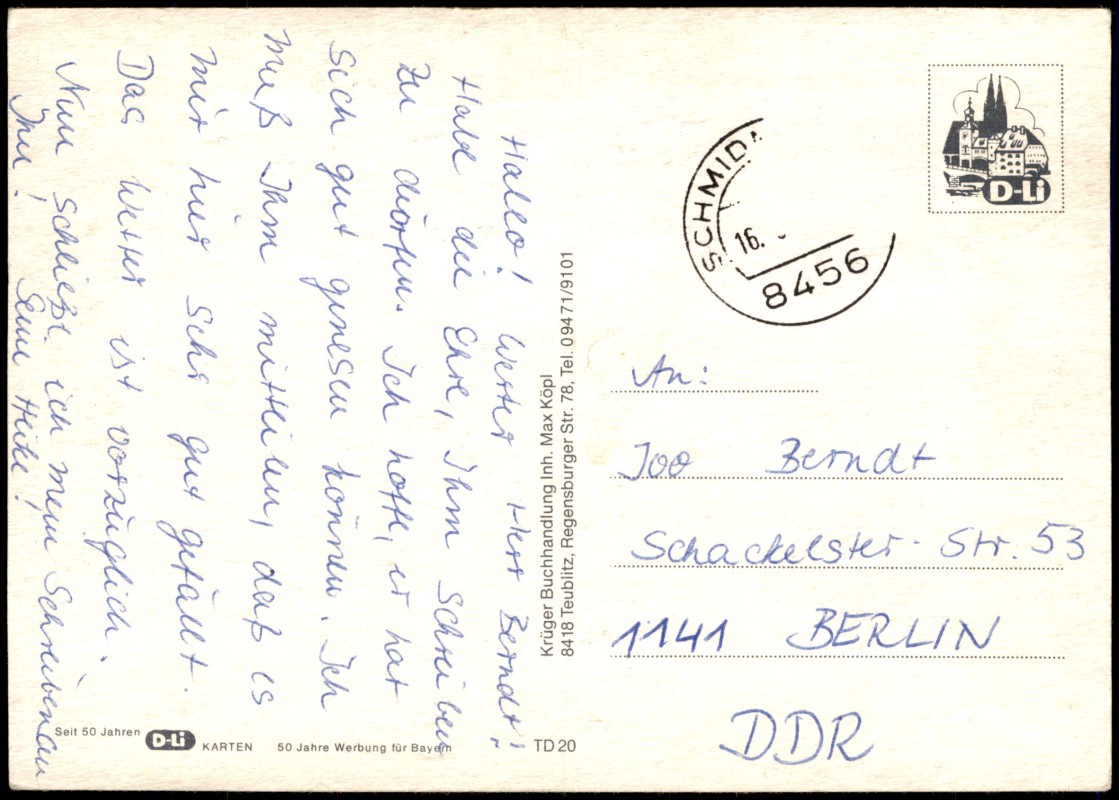 Hallo! Werter Herr Berndt!
Habe die Ehre, Ihm Schreiben
zu dörfen. Ich hoffe, er hat
sich gut genesen können. Ich
muß Ihm mitteilen, daß es
mir hier sehr gut gefällt.
Das Wetter ist vorzüglich.
Nun schließt ich mein Schreiben an
Ihn! Seine Heike!
Krüger Buchhandlung Inh. Max Köpl
8418 Teublitz, Regensburger Str. 78, Tel. 09471/9101
Seit 50 Jahren D-Li KARTEN 50 Jahre Werbung für Bayern TD 20
D-Li
SCHMID
16.
8456
An:
Joo Berndt
Schackelster- Str. 53
1141 BERLIN
DDR